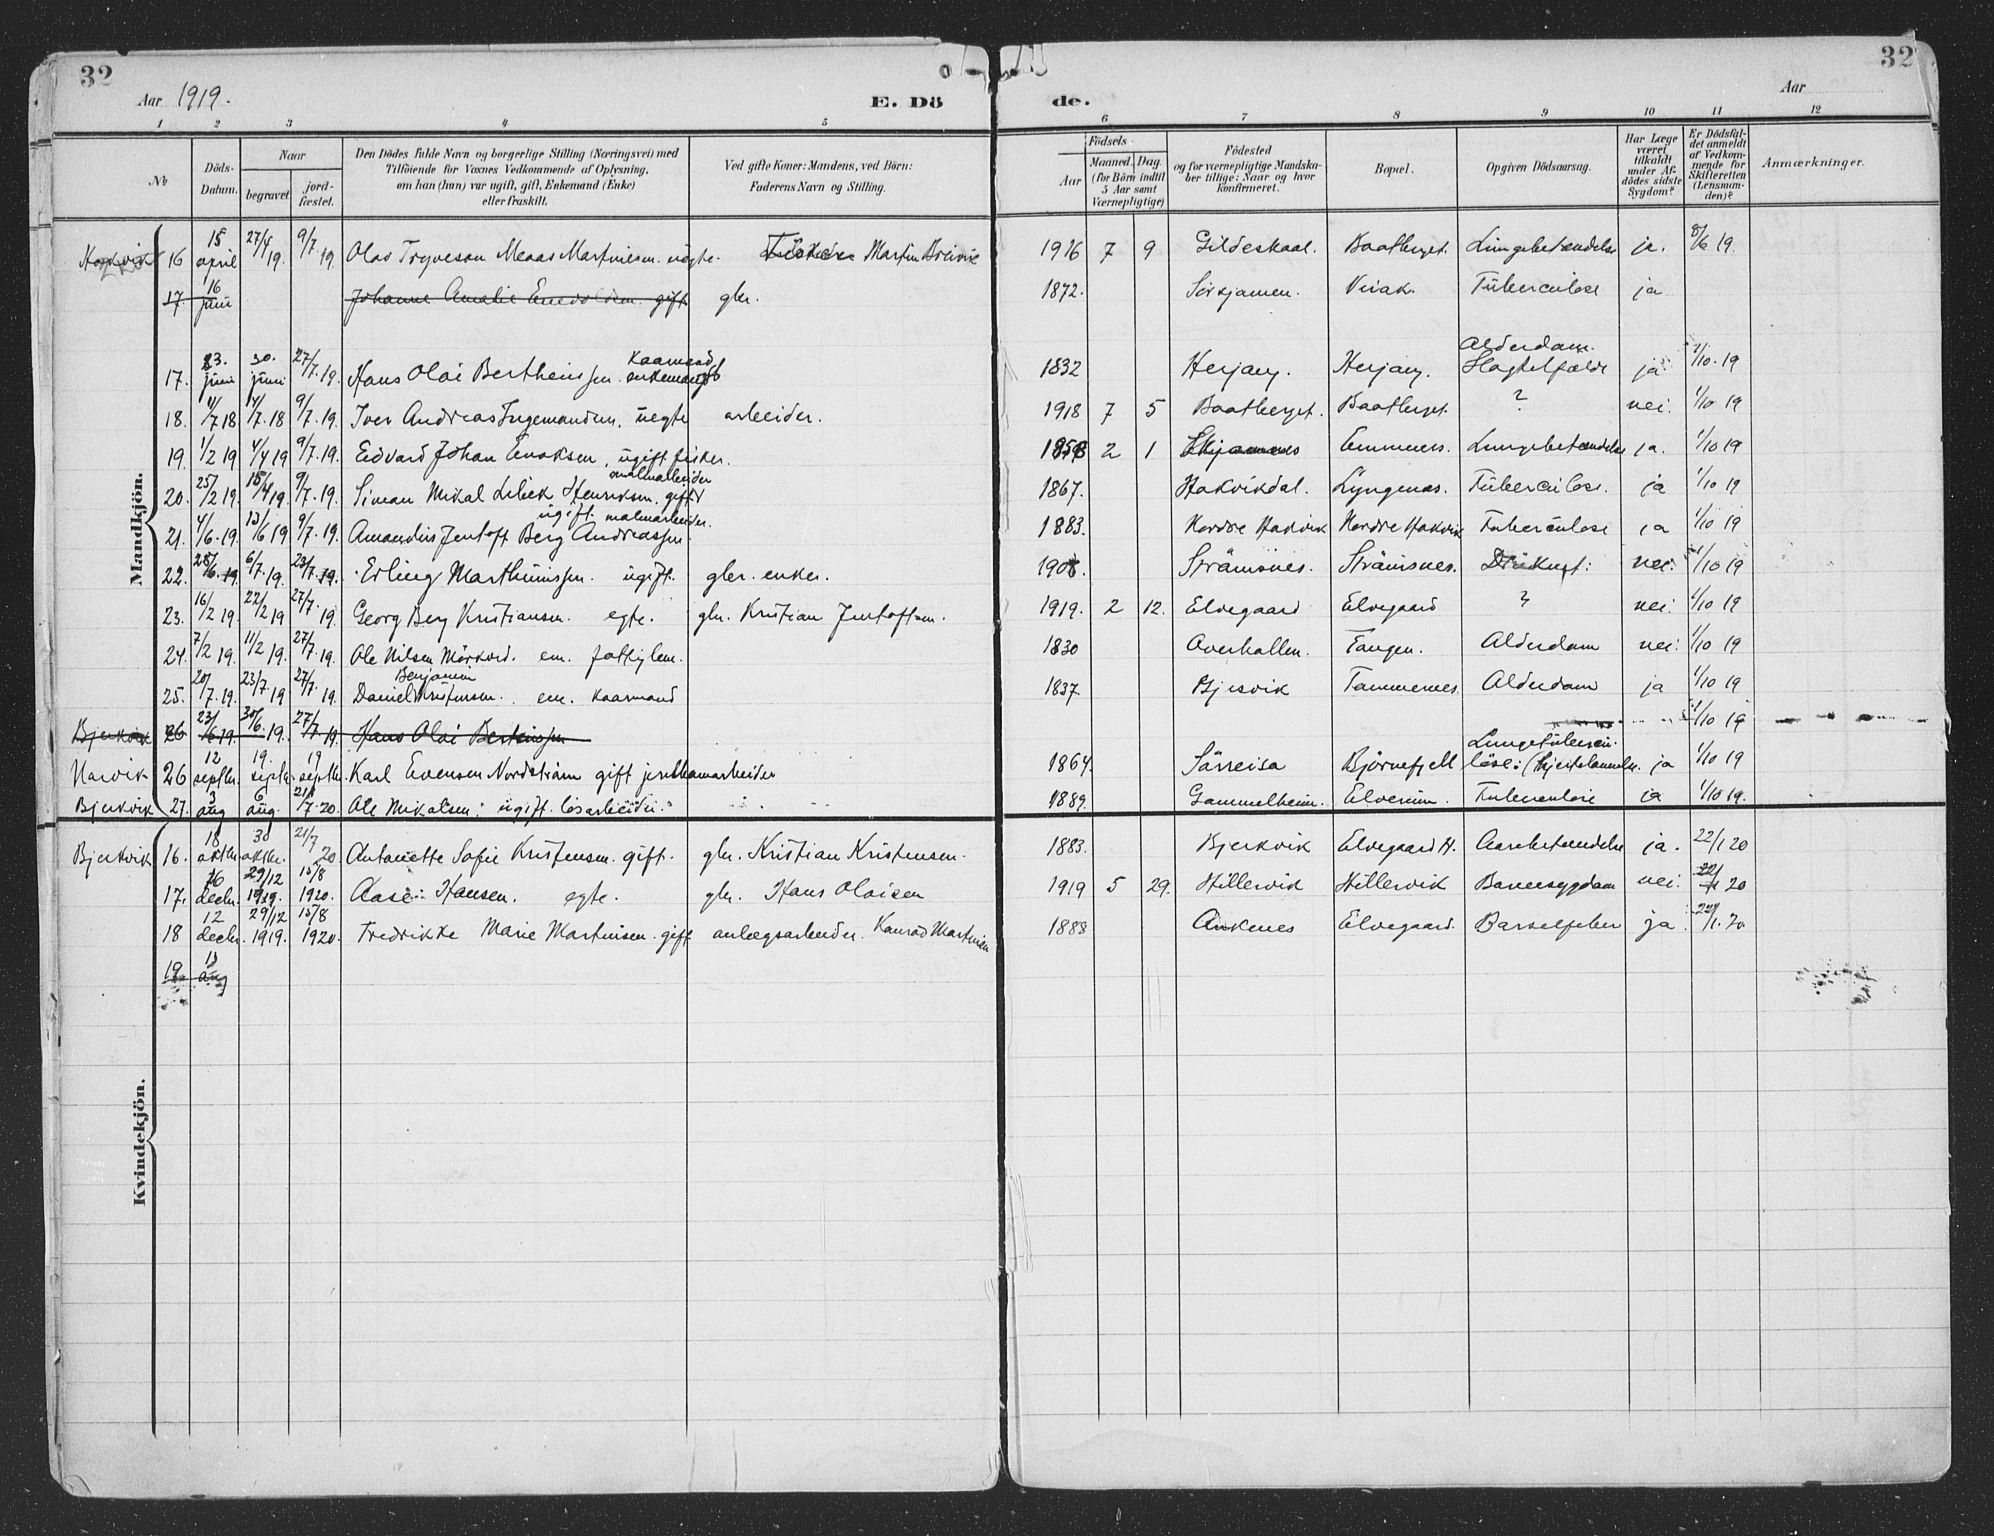 32
32
Aar 1919.
E. Dö
de.
Aar
1 2 3 4 5 6 7 8 9 10 11 12
No
Döds-Datum.
Naar
begravet.
jord-fæstet.
Den Dödes fulde Navn og borgerlige Stilling (Næringsvei) med
Tilföiende for Voxnes Vedkommende af Oplysning,
om han (hun) var ugift, gift, Enkemand (Enke)
eller fraskilt.
Ved gifte Koner: Mandens, ved Börn:
Faderens Navn og Stilling.
Födsels-
Aar
Maaned. Dag.
(for Börn indtil
5 Aar samt
Værnepligtige)
Födested
og for værnepligtige Mandska-
ber tillige: Naar og hvor
konfirmeret.
Bopæl.
Opgiven Dödsaarsag.
Har Læge
været
tilkaldt
under Af-
dödes sidste
Sygdom?
Er Dödsfal-
det anmeldt
af Vedkom-
mende for
Skifteretten
(Lensman-
den)?
Anmærkninger.
Mandkjön.
16 15 april 27/4 19. 9/7. 19 Olav Trygveson Meaas Martinsen uegte. Martin Breivik 1916 7 9 Gildeskaal. Baatberget. Lungebetændelse ja. 8/6 19.
17. 16 juni Johanne Amalie gift gbr. 1872. Virak Tuberculose ja
17. 23. juni 30. juni 27/7. 19. Hans Olai Bertheussen. Kaarmand enkemand 1832 Herjang. Herjang. Alderdom. Slagtilfælde ja 1/10. 19
18. 11/7 18 14/7. 18 9/7. 19. Iver Andreas Ingemundsen, uegte arbeider. 1918 7 5 Baatberget. Baatberget. ? nei. 1/10 19
19. 1/2 19 4/4 19 9/7. 19. Edvard Johan Enoksen, ugift fisker. 2 1 Emmenes. Lungebetændelse ja. 1/10 19
20. 25/2 19. 18/4 19. 9/7. 19. Simon Mikal Henriksen. gift malmarbeider 1867. Hakvikdal. Lyngenes. Tuberculose. ja 1/10 19
21. 4/6. 19. 13/6 19 9/7. 19. Amandus Jentoft Berg Andreassen ugift malmarbeider. 1883. Nordre Hakvik Nordre Hakvik Tuberculose ja 1/10 19
22. 28/6. 19. 6/7. 19. 23/7. 19. Erling Marthinussen. ugift. gbr. enker. Strömsnes. Strömsnes. Druknet. nei. 1/10 19
23. 16/2 19. 22/2 19 27/7. 19. Georg Berg Kristiansen. egte. gbr. Kristian Jentoftsen. 1919. 2 12. Elvegaard Elvegaard ? nei. 1/10 19
24. 7/2 19. 11/2 19. 27/7. 19. Ole Nilsen Mörkved. em. fattiglem. 1830 Overhallen. Tangen. Alderdom nei. 1/10 19
25. 20/7. 19. 23/7. 19 27/7. 19. Daniel Benjamin Kristensen. em. kaarmand 1837. Bjervik Tømmernes. Alderdom ja 1/10 19
Bjerkvik 26 23/6 19. 30/6. 19. 27/7 19. Hans Olai Bertinssen 1/10 19
Narvik 26 12 septbr. 19. septbr. 19 septbr. Karl Evensen Nordström gift jernbanearbeider 1864. Sörreisa Björnefjell Lungetubercu-löse: ja 1/10 19
Bjerkvik 27. 3 aug 6 aug. 21/7. 20. Ole Mikalsen: ugift. lösarbeider. 1889. Gammelheim. Elverum. Tuberculose ja 1/10 19.
Kvindekjön.
Bjerkvik 16. 18 oktbr. 30 oktbr. 21/7 20 Antonette Sofie Kristensen. gift. gbr. Kristian Kristensen. 1883. Bjerkvik Elvegaard H. Aarebetændelse ja. 22/1 20
17. 26 decbr. 29/12 1919. 15/8 1920. Aase: Hansen. egte. gbr. Hans Olaisen 1919 5 29. Hillervik Hillervik Barnesygdom nei. 22/1 20
18 12 decbr. 29/12 1919. 15/8 1920. Fredrikke Marie Martinsen. gift anlægsarbeider. Konrad Martinsen 1888 Ankenes Elvegaard. Barselfeber ja. 22/1. 20
19 13 aug